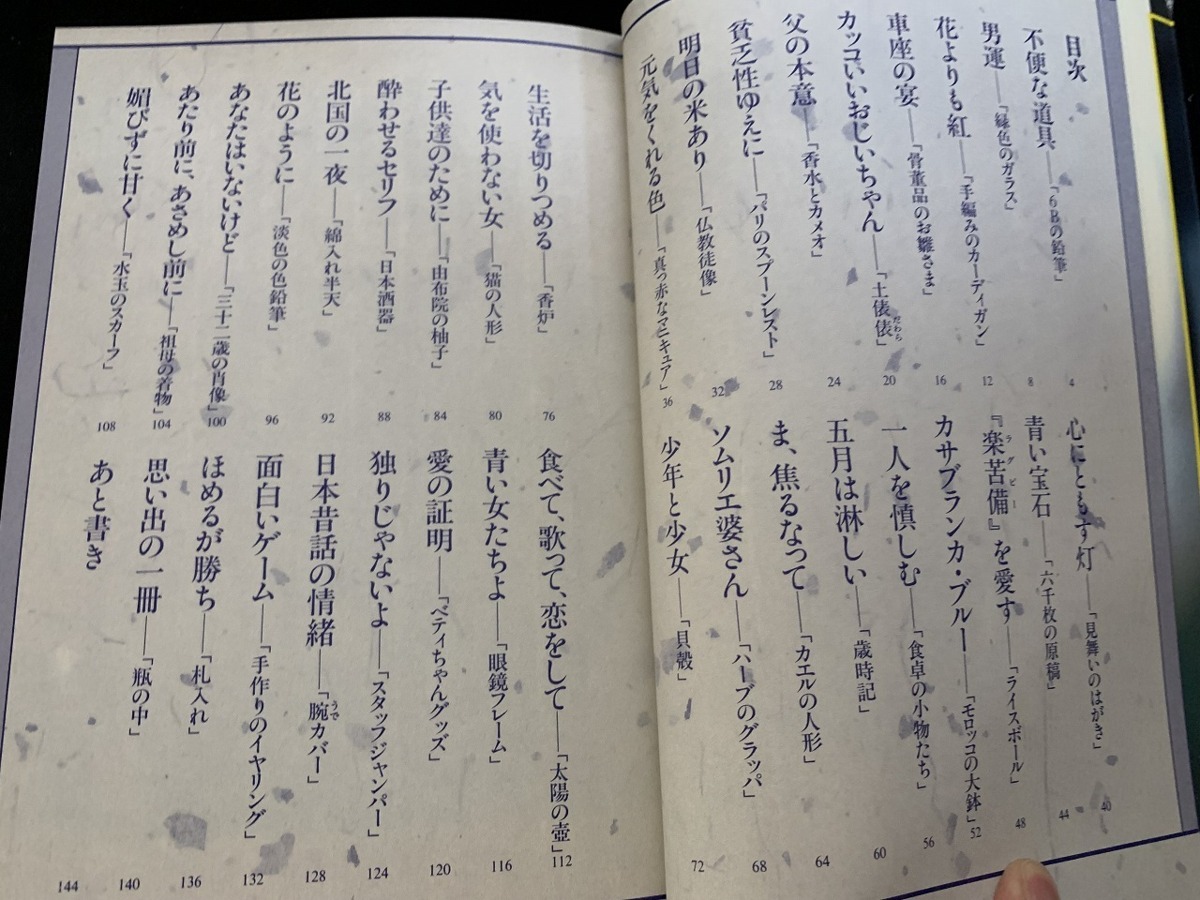 目次
不便な道具――「6Bの鉛筆」 4
男運――「緑色のガラス」 8
花よりも紅――「手編みのカーディガン」 12
車座の宴――「骨董品のお雛さま」 16
カッコいいおじいちゃん――「土俵俵」 20
だわら
父の本意――「香水とカメオ」 24
貧乏性ゆえに――「パリのスプーンレスト」 28
明日の米あり――「仏教徒像」 32
元気をくれる色――「真っ赤なマニキュア」 36
心にともす灯――「見舞いのはがき」 40
青い宝石――「六千枚の原稿」 44
『楽苦備』を愛す――「ライスボール」 48
ラグビー
カサブランカ・ブルー――「モロッコの大鉢」 52
一人を慎しむ――「食卓の小物たち」 56
五月は淋しい――「歳時記」 60
ま、焦るなって――「カエルの人形」 64
ソムリエ婆さん――「ハーブのグラッパ」 68
少年と少女――「貝殻」 72
生活を切りつめる――「香炉」 76
気を使わない女――「猫の人形」 80
子供達のために――「由布院の柚子」 84
酔わせるセリフ――「日本酒器」 88
北国の一夜――「綿入れ半天」 92
花のように――「淡色の色鉛筆」 96
あなたはいないけど――「三十二歳の肖像」 100
あたり前に、あさめし前に――「祖母の着物」 104
媚びずに甘く――「水玉のスカーフ」 108
食べて、歌って、恋をして――「太陽の壺」 112
青い女たちよ――「眼鏡フレーム」 116
愛の証明――「ベティちゃんグッズ」 120
独りじゃないよ――「スタッフジャンパー」 124
日本昔話の情緒――「腕カバー」 128
うで
面白いゲーム――「手作りのイヤリング」 132
ほめるが勝ち――「札入れ」 136
思い出の一冊――「瓶の中」 140
あと書き 144